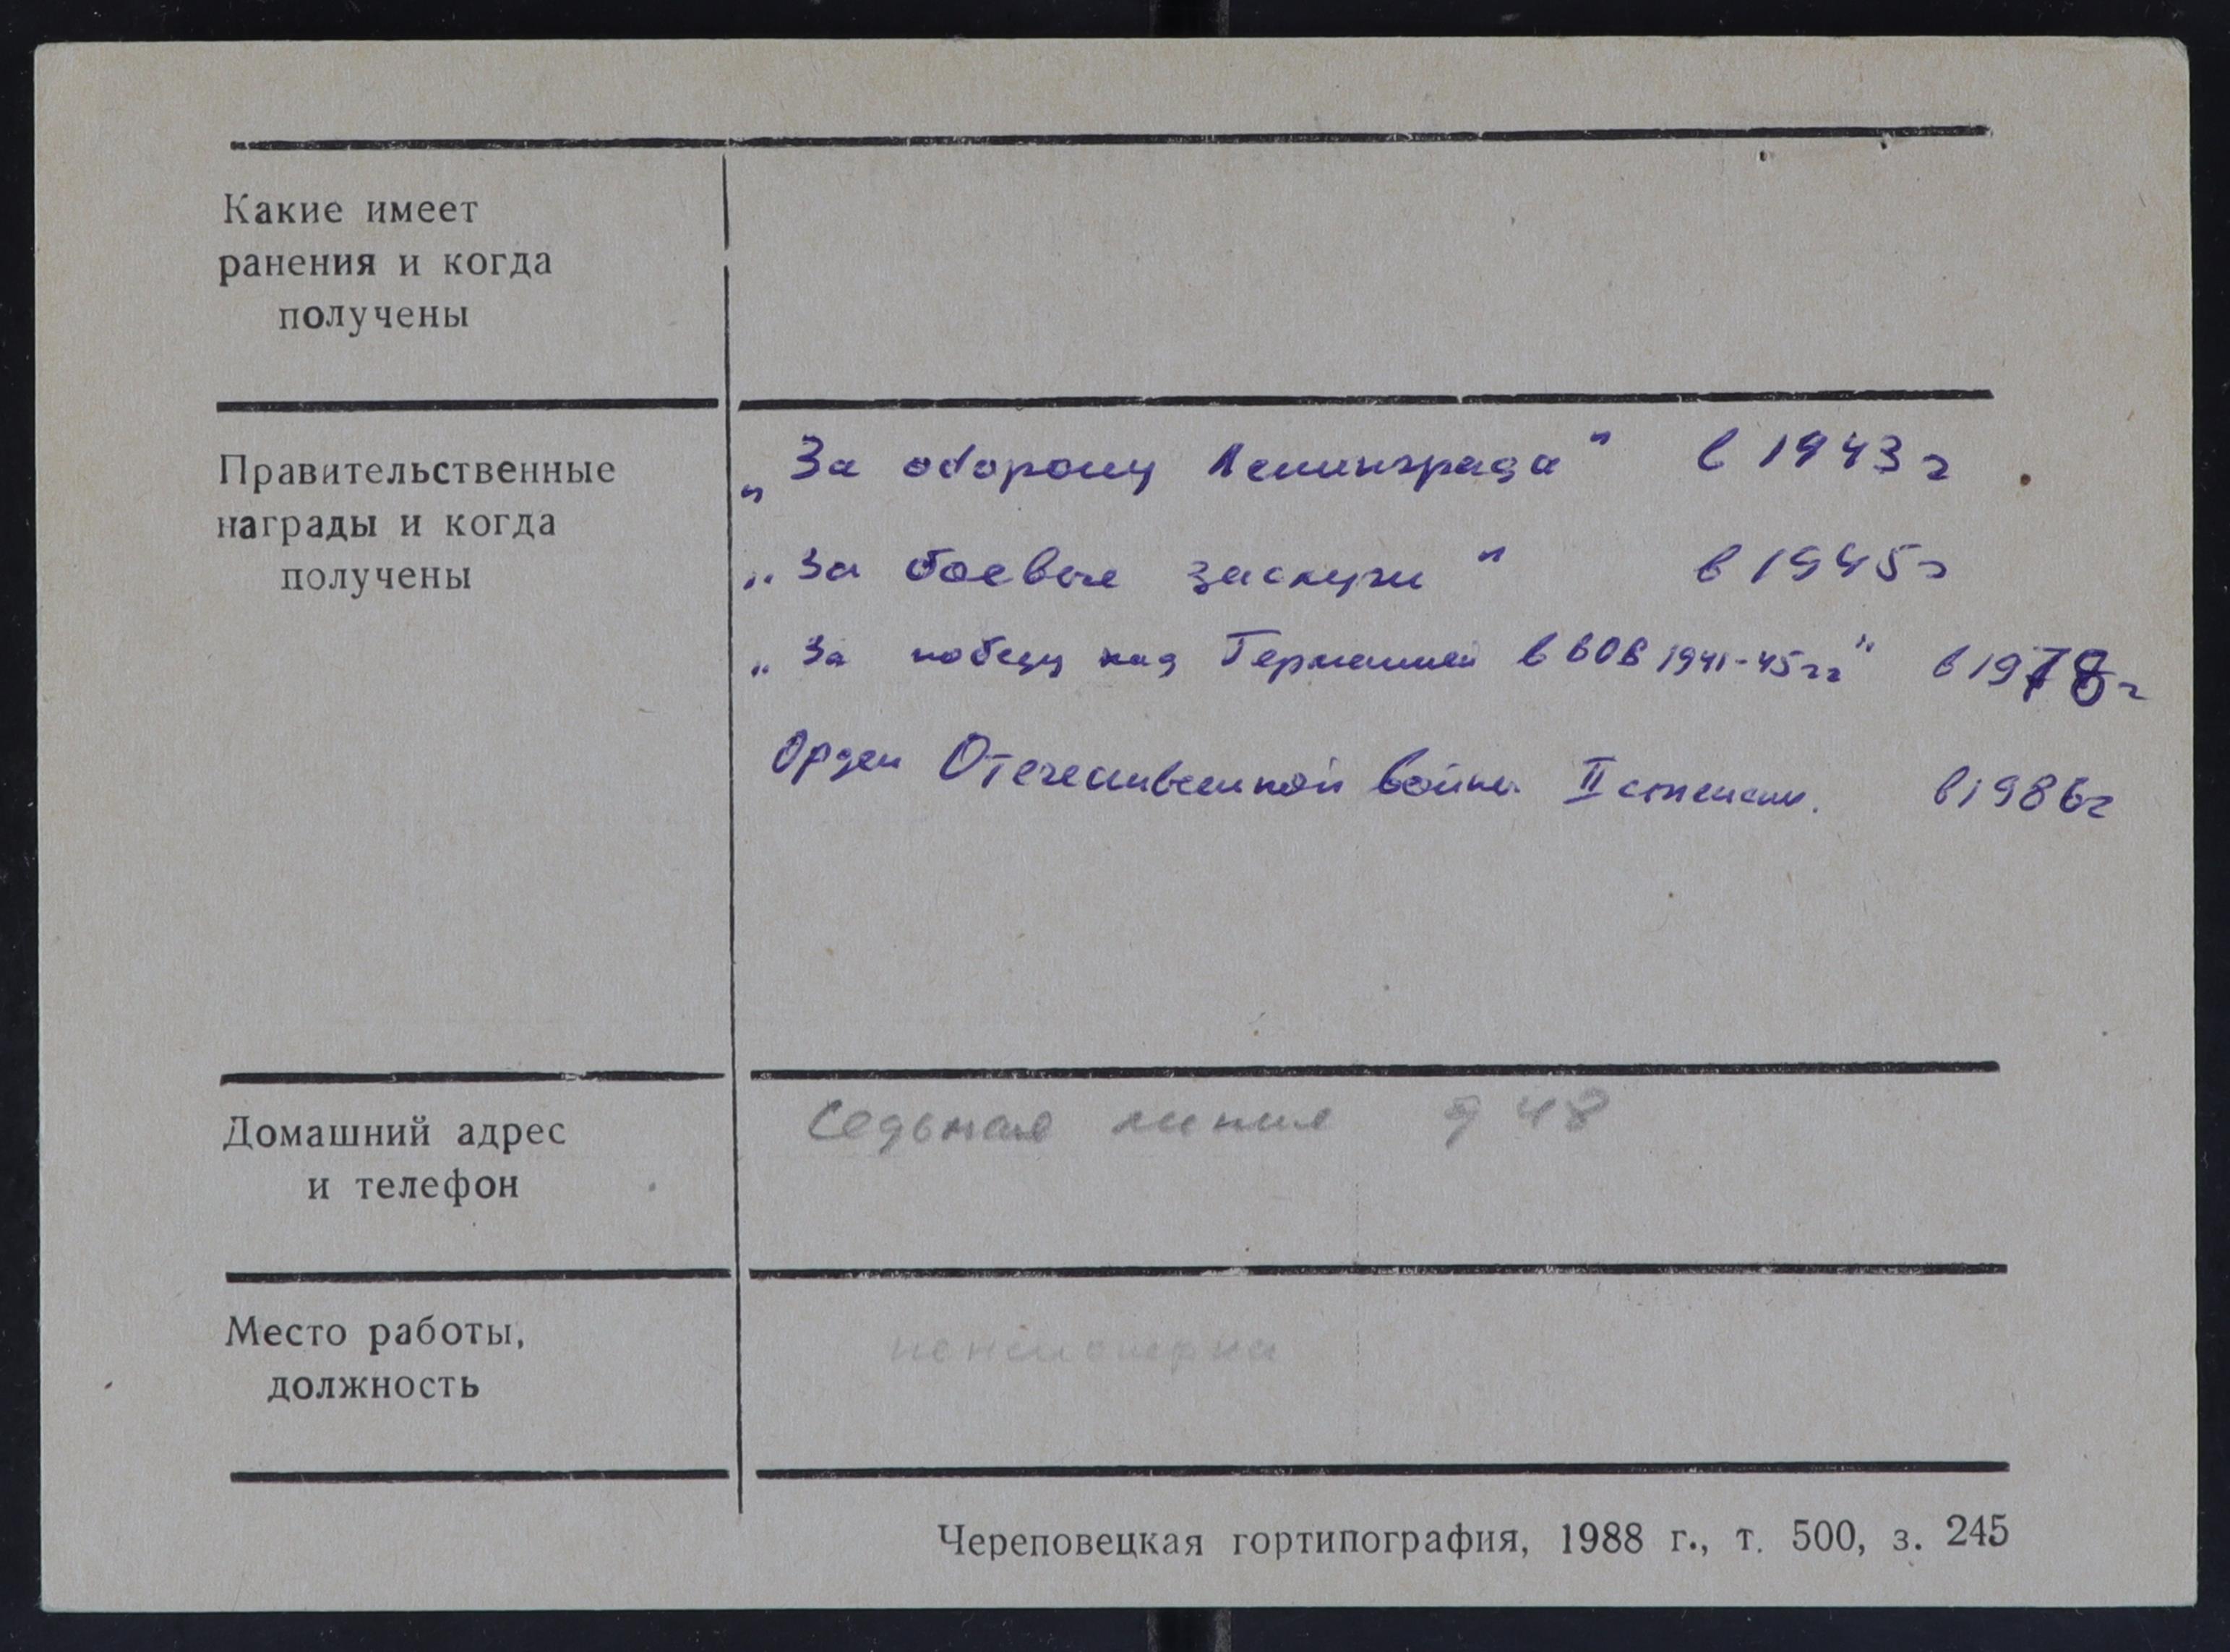 Какие имеет
ранения и когда
получены
Правительственные
награды и когда
получены
„За оборону Ленинграда" в 1943 г
„За боевые заслуги" в 1945 г
„За победу над Германией в ВОВ 1941-45 гг" в 1978 г
Орден Отечественной войны II степени. в 1986 г
Домашний адрес
и телефон
Седьмая линия д 48
Место работы,
должность
пенсионерка
Череповецкая гортипография, 1988 г., т. 500, з. 245